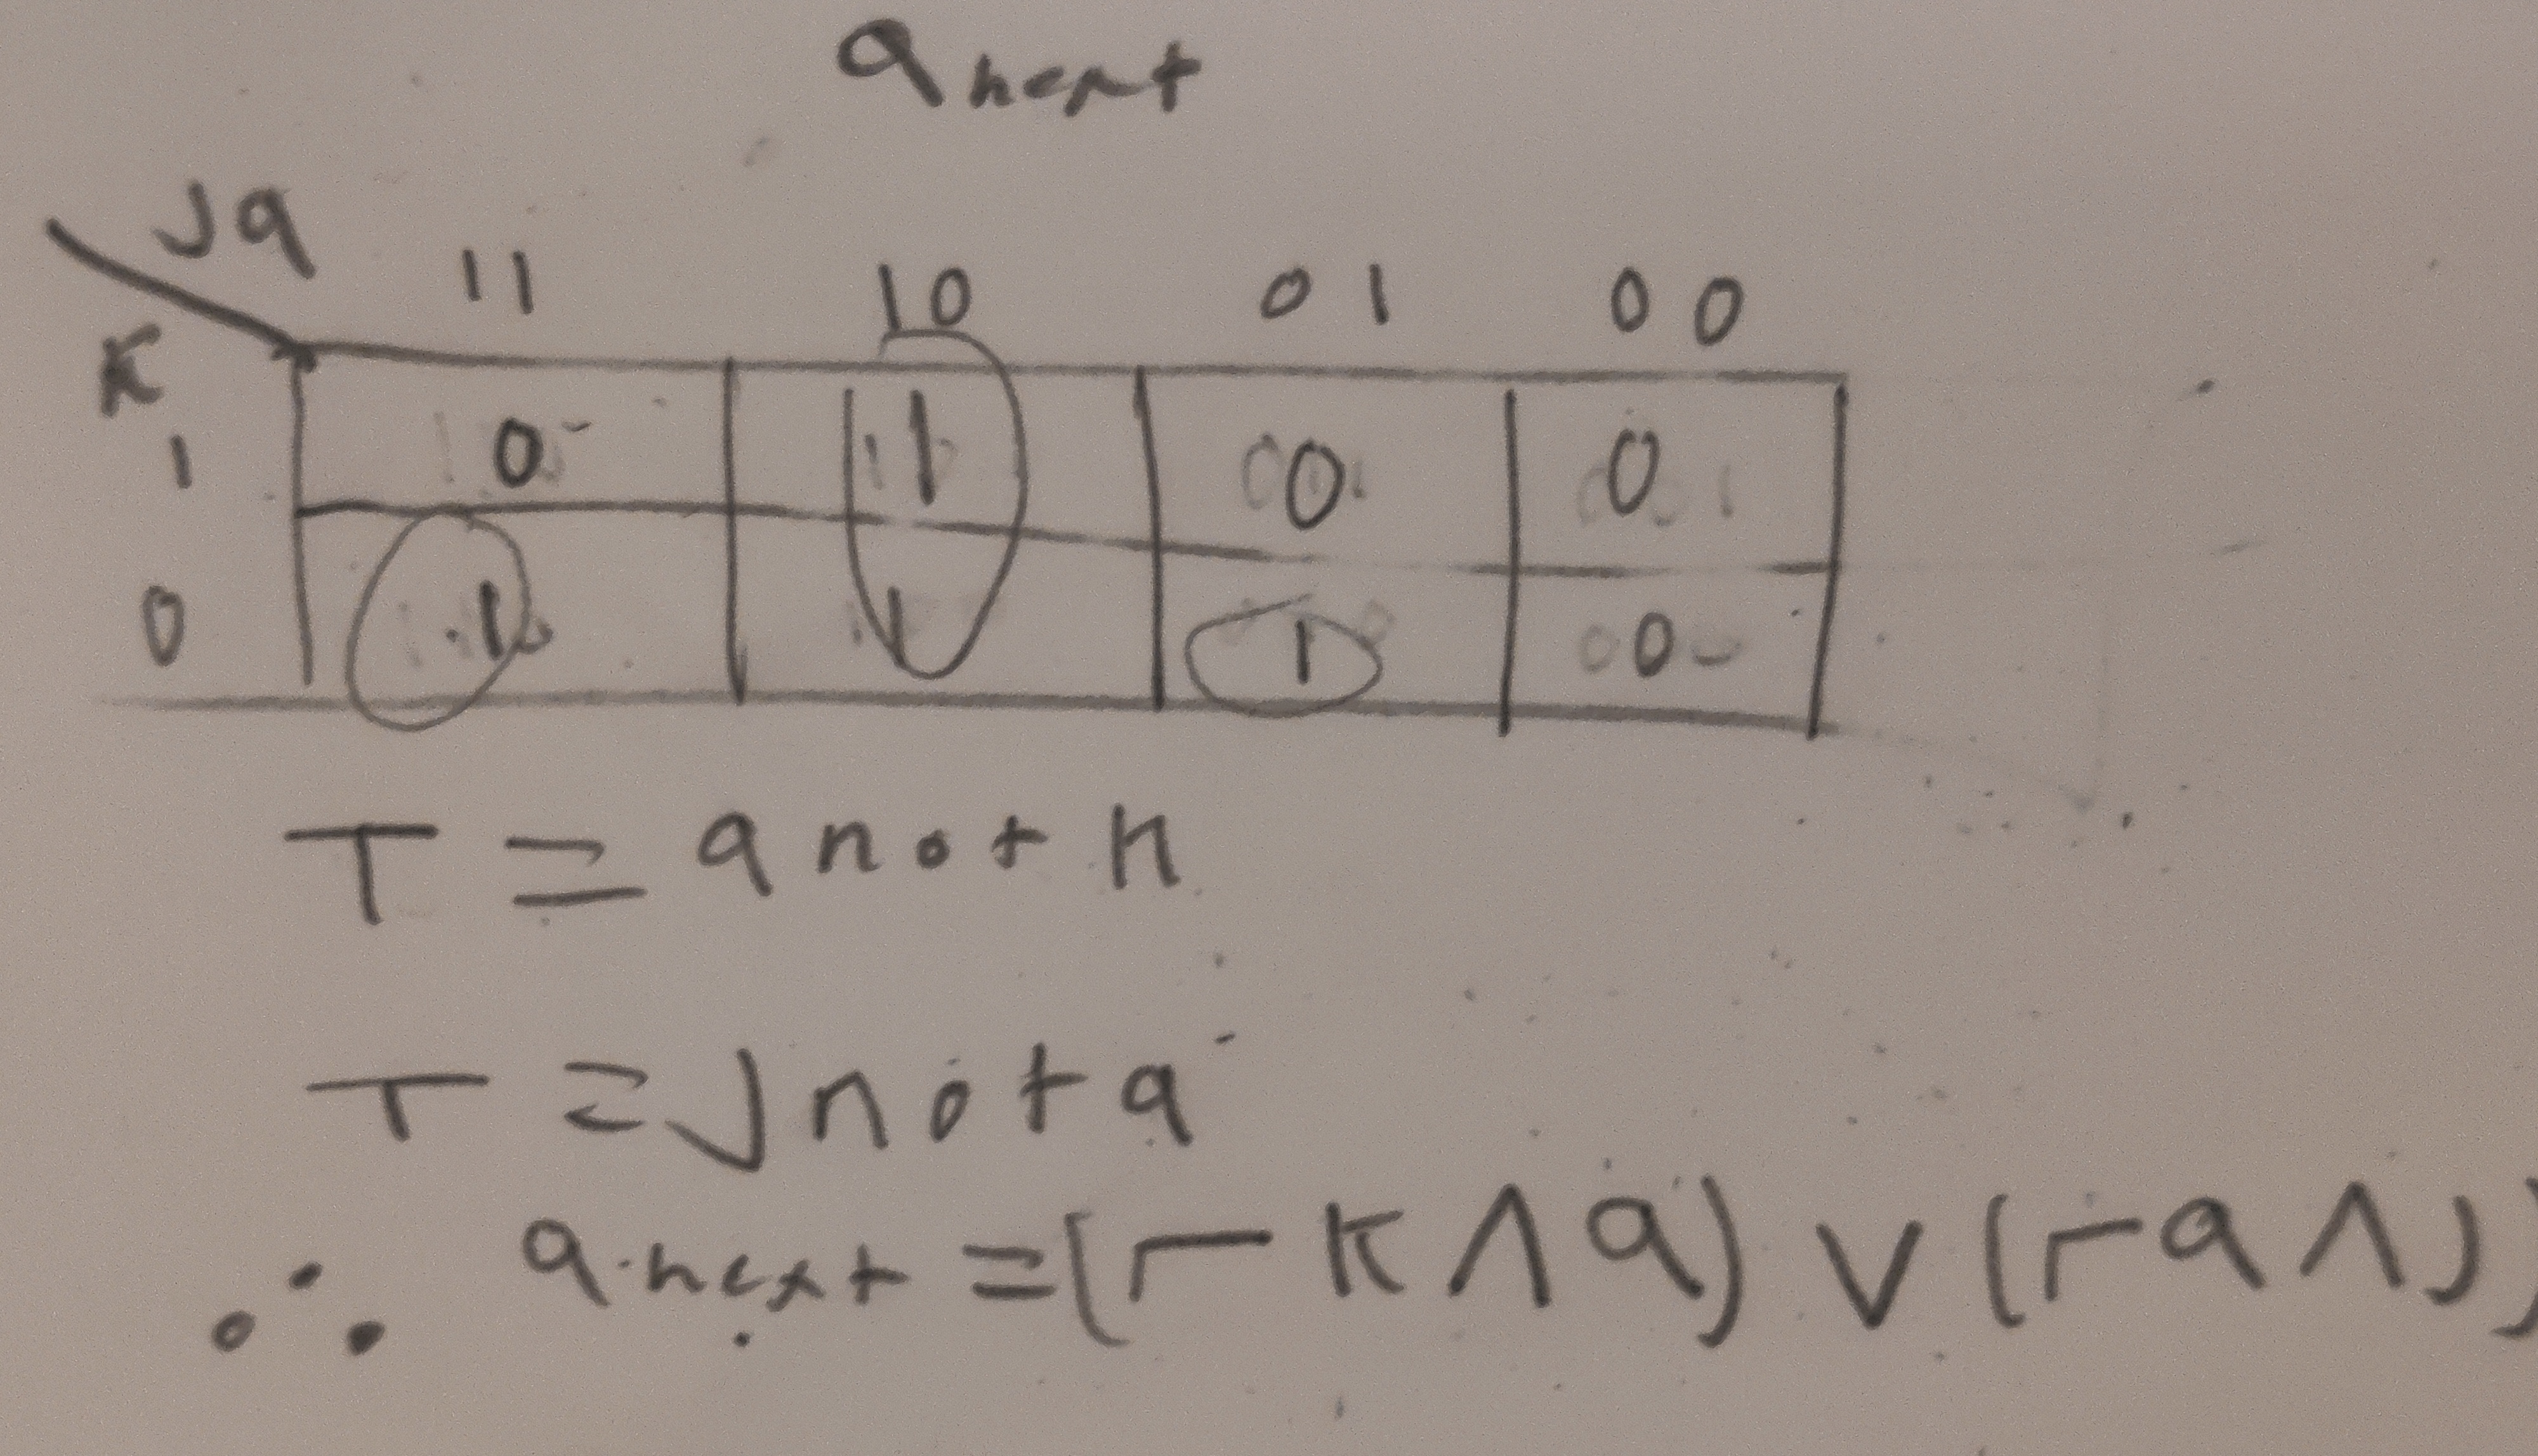 q next
Jq 11 10 01 00
K
1 0 1 0 0
0 1 1 1 0
T = q not K
T = J not q
∴ q next = (¬ K ∧ q) ∨ (¬ q ∧ J)